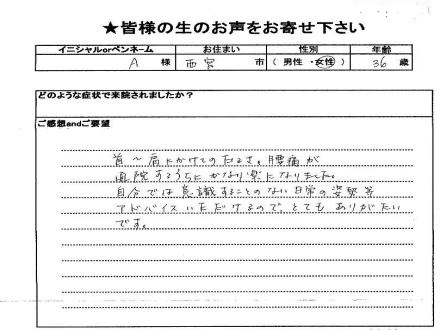 ★皆様の生のお声をお寄せ下さい
イニシャルorペンネーム お住まい 性別 年齢
A 様 西宮 市 ( 男性 ・ 女性 ) 36 歳
どのような症状で来院されましたか？
ご感想andご要望
首～肩にかけてのだるさ。腰痛が
通院するうちにかなり楽になりました。
自分では意識することのない日常の姿勢等
アドバイスいただけるので、とてもありがたい
です。